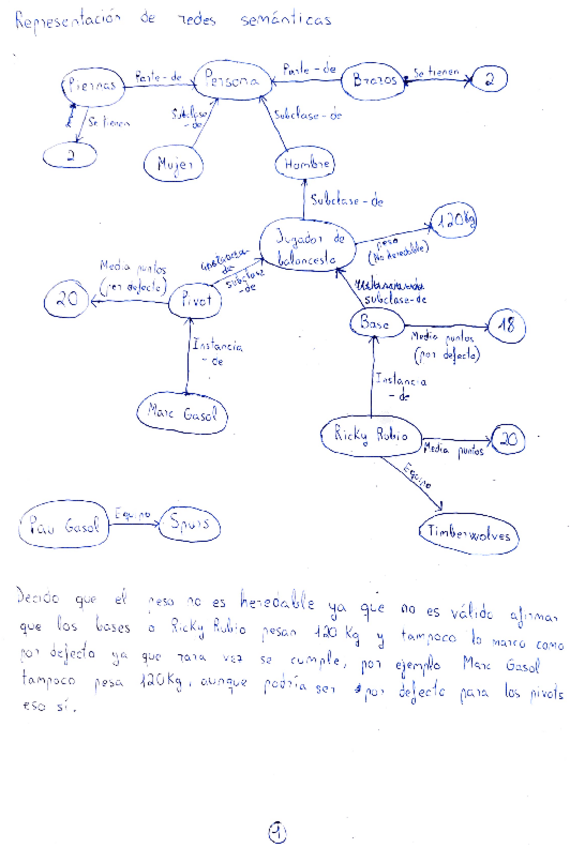 Representación de redes semánticas
Piernas
Parte-de
Persona
Parte-de
Brazos
Se tienen
2
Se tienen
2
Subclase
-de
Subclase-de
Mujer
Hombre
Subclase-de
120Kg
peso
(No heredable)
Jugador de
baloncesto
Media puntos
(por defecto)
subclase
-de
20
Pivot
subclase-de
Base
18
Media puntos
(por defecto)
Instancia
-de
Instancia
-de
Marc Gasol
Ricky Rubio
20
Media puntos
Equipo
Pau Gasol
Equipo
Spurs
Timberwolves
Decido que el peso no es heredable ya que no es válido afirmar
que los bases o Ricky Rubio pesan 120 Kg y tampoco lo marco como
por defecto ya que rara vez se cumple, por ejemplo Marc Gasol
tampoco pesa 120Kg, aunque podría ser por defecto para los pivots
eso sí.
1